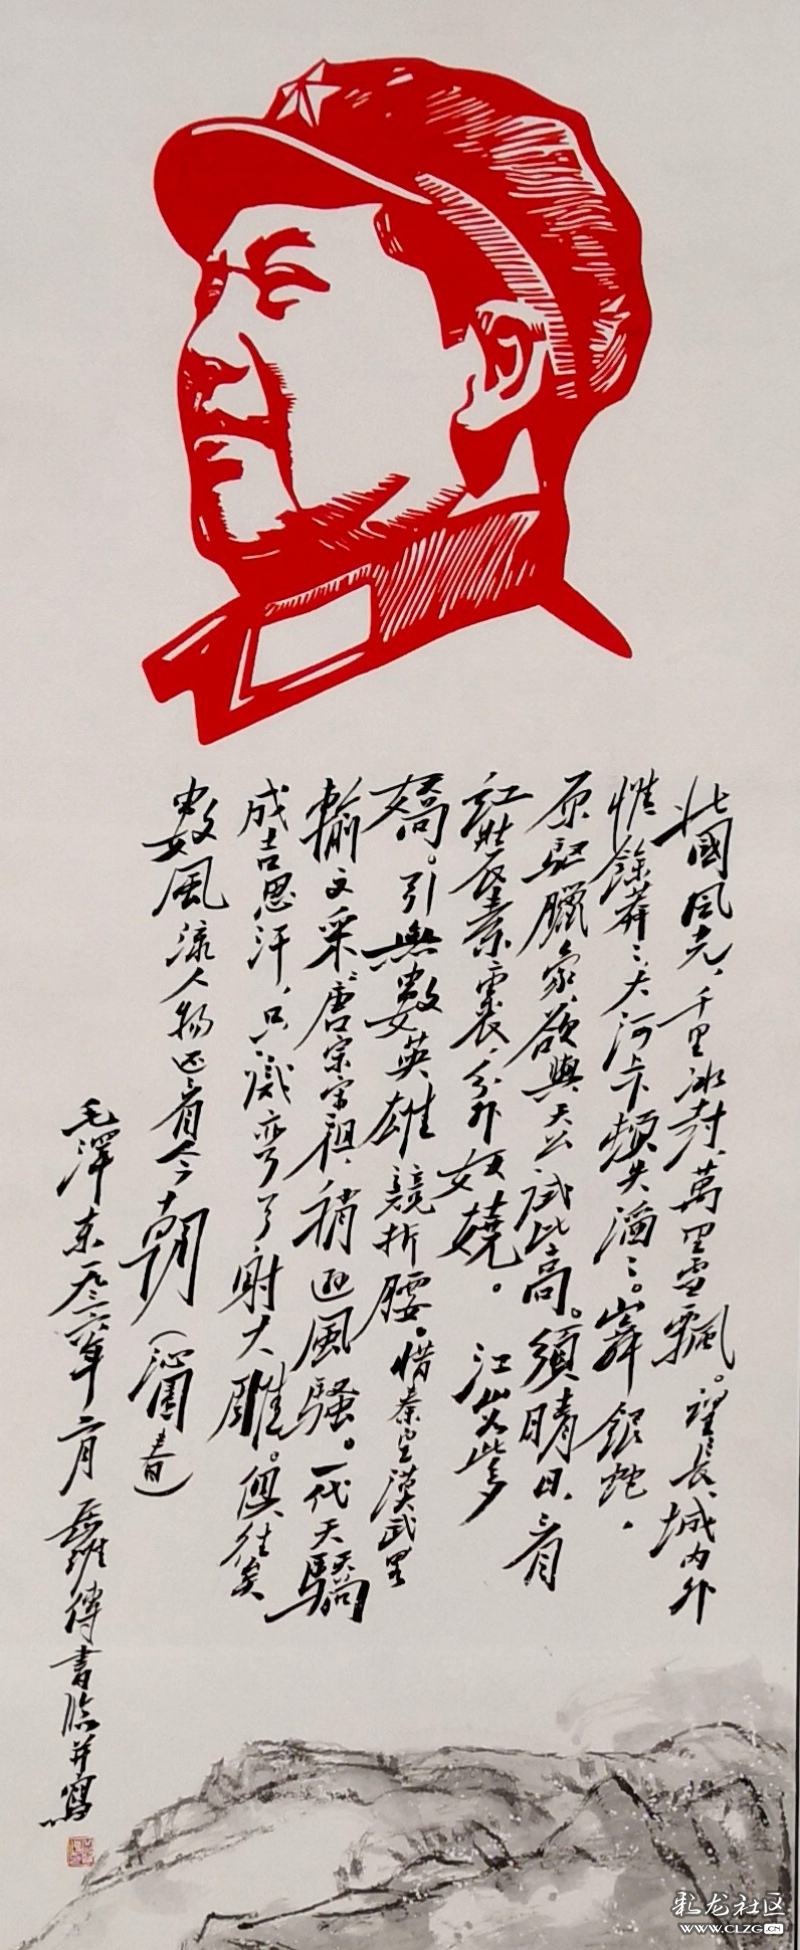 北國風光，千里冰封，萬里雪飄。望長城内外
惟餘莽〻，大河上下頓失滔〻。山舞銀蛇，
原駆臘象，欲與天公試比高。須晴日，看
紅裝素裹，分外妖嬈。江山如此多
嬌。引無數英雄競折腰。惜秦皇漢武畧
輸文采，唐宗宋祖，稍逊風騷。一代天驕
成吉思汗，只識弯弓射大雕。俱往矣
數風流人物还看今朝（沁園春）
毛澤東一九三六年二月 書臨并寫
彩龙社区
WWW.CLZG.CN